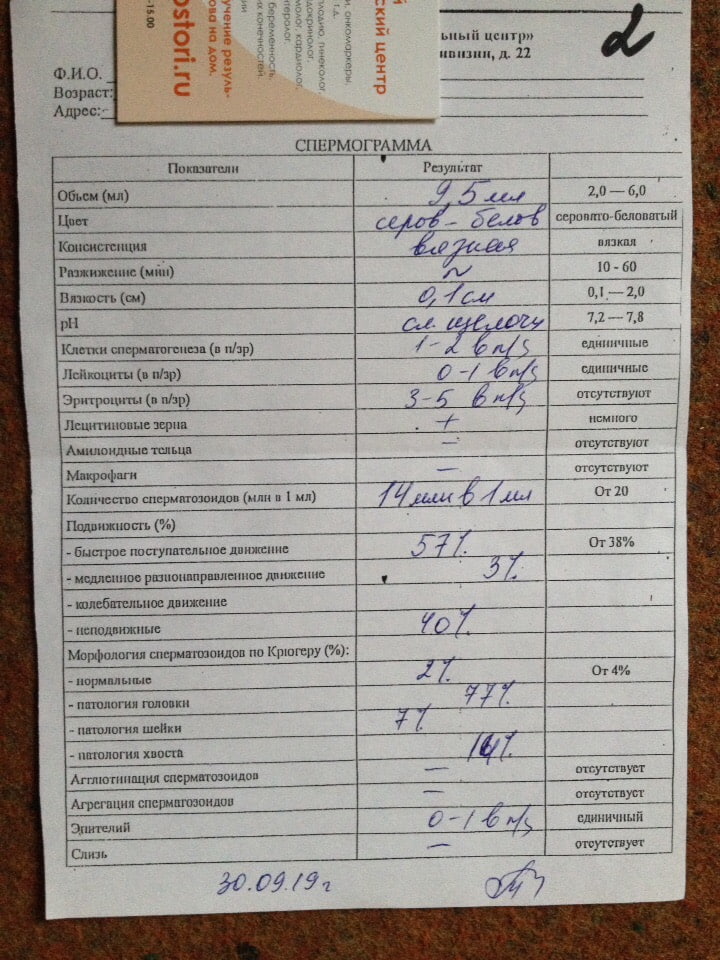 -15.00
ostori.ru
лучение резуль-
ова на дом.
беременность,
их конечностей
кий центр
и, онкомаркеры,
т.д.
плодию, гинеколог,
молог, кардиолог,
льный центр»
ивизии, д. 22
2
Ф.И.О.
Возраст:
Адрес:
СПЕРМОГРАММА
Показатели Результат
Объем (мл) 9,5 мл 2,0 — 6,0
Цвет серов-белов серовато-беловатый
Консистенция вязкая вязкая
Разжижение (мин) ~ 10 - 60
Вязкость (см) 0,1 см 0,1 — 2,0
pH сл. щелочн 7,2 — 7,8
Клетки сперматогенеза (в п/зр) 1-2 в п/з единичные
Лейкоциты (в п/зр) 0-1 в п/з единичные
Эритроциты (в п/зр) 3-5 в п/з отсутствуют
Лецитиновые зерна + немного
Амилоидные тельца — отсутствуют
Макрофаги — отсутствуют
Количество сперматозоидов (млн в 1 мл) 14 млн в 1 мл От 20
Подвижность (%)
- быстрое поступательное движение 57% От 38%
- медленное разнонаправленное движение 3%
- колебательное движение
- неподвижные 40%
Морфология сперматозоидов по Крюгеру (%):
- нормальные 2% От 4%
- патология головки 77%
- патология шейки 7%
- патология хвоста 14%
Агглютинация сперматозоидов — отсутствует
Агрегация сперматозоидов — отсутствует
Эпителий 0-1 в п/з единичный
Слизь — отсутствует
30.09.19г